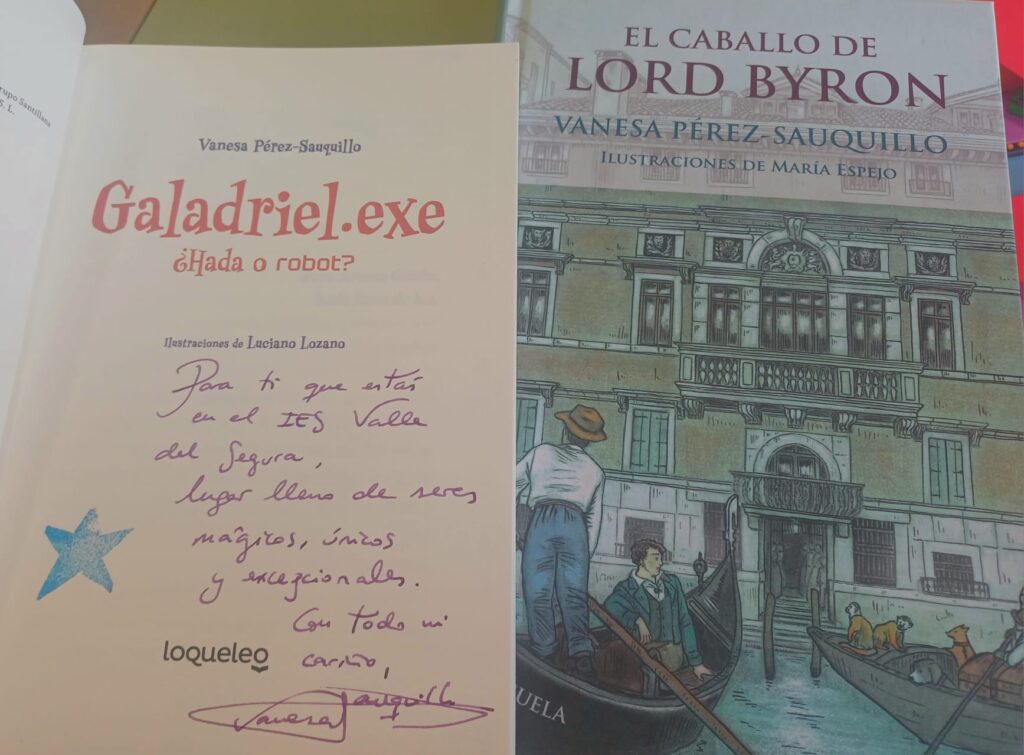 rupo Santillana
S. L.
Vanesa Pérez-Sauquillo
Galadriel.exe
¿Hada o robot?
Ilustraciones de Luciano Lozano
Para ti que estás
en el IES Valle
del Segura,
lugar lleno de seres
mágicos, únicos
y excepcionales.
Con todo mi
cariño,
Vanesa Sauquillo
loqueleo
EL CABALLO DE
LORD BYRON
VANESA PÉREZ-SAUQUILLO
ILUSTRACIONES DE MARÍA ESPEJO
UELA